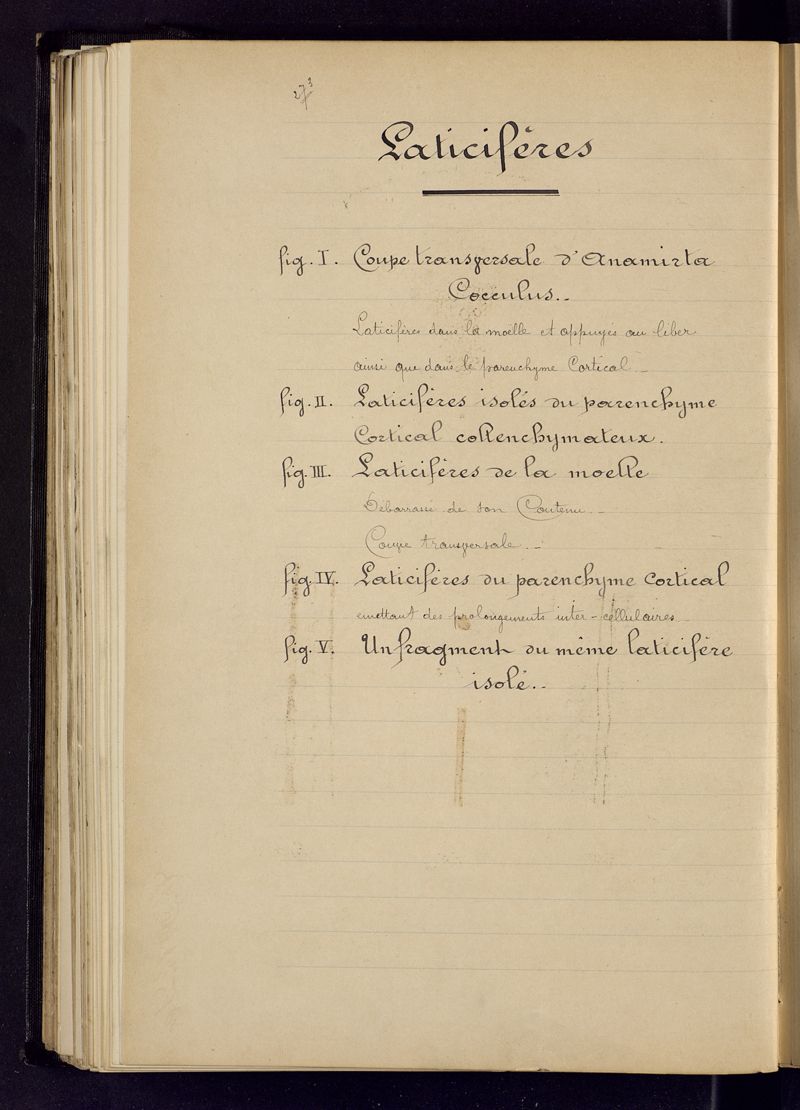 Laticifères
fig. I. Coupe transversale d'Anamirta
Cocculus.
Laticifères dans la moelle et appuyés au liber
ainsi que dans le parenchyme Cortical.
fig. II. Laticifères isolés du parenchyme
Cortical collenchymateux.
fig. III. Laticifères de la moelle
Débarrassé de son Contenu.
Coupe transversale.
fig. IV. Laticifères du parenchyme Cortical
emettant des prolongements inter-cellulaires
fig. V. Un fragment du même laticifère
isolé.